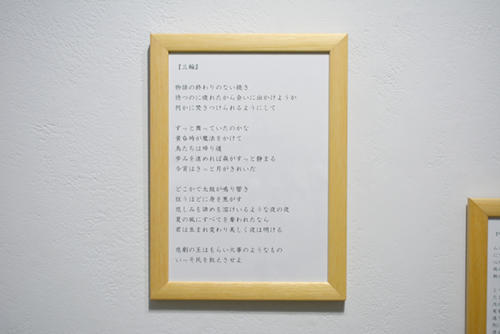 『三輪』
物語の終わりのない続き
待つのに疲れたから会いに出かけようか
何かに焚きつけられるようにして
ずっと舞っていたのかな
黄昏時が魔法をかけて
鳥たちは帰り道
歩みを進めれば森がすっと静まる
今宵はきっと月がきれいだ
どこかで太鼓が鳴り響き
狂うほどに身を焦がす
悲しみも諦めも溶けいるような夜の夜
夏の風にすべてを奪われたなら
君は生まれ変わり美しく夜は明ける
悲劇の王はもらい火事のようなもの
いっそ民を飢えさせよ